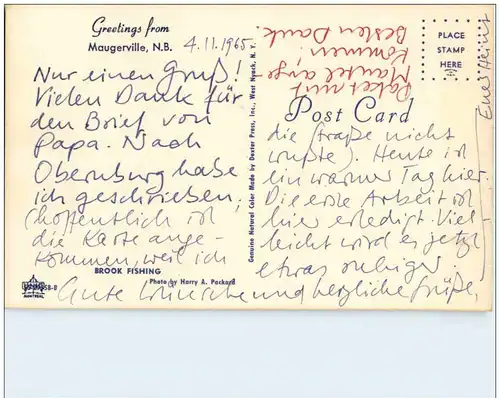 Greetings from
Maugerville, N.B.
4.11.1965
Nur einen Gruß!
Vielen Dank für
den Brief von
Papa. Nach
Obernburg habe
ich geschrieben,
(hoffentlich ist
die Karte ange-
kommen, weil ich
BROOK FISHING
Photo by Harry A. Packard
MONTREAL
Genuine Natural Color Made by Dexter Press, Inc., West Nyack, N. Y.
Paket mit
Mantel ange
kommen.
Besten Dank.
PLACE
STAMP
HERE
Post Card
die Straße nicht
wußte). Heute ist
ein warmer Tag hier.
Die erste Arbeit ist
hier erledigt. Viel-
leicht wird es jetzt
etwas ruhiger.
Gute Wünsche und herzliche Grüße,
Euer Heinz